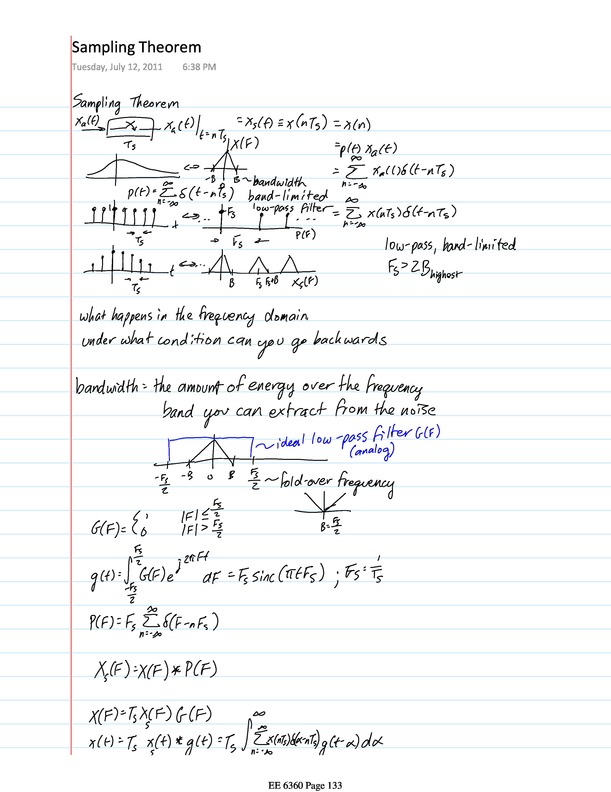 Sampling Theorem
Tuesday, July 12, 2011 6:38 PM
Sampling Theorem
xₐ(t) Tₛ xₐ(t)|t=nTₛ = xₛ(t) ≡ x(nTₛ) = x(n)
X(F) = p(t) xₐ(t)
-B B ~bandwidth = ∑n=-∞^∞ xₐ( )δ(t-nTₛ)
p(t) = ∑n=-∞^∞ δ(t-nTₛ) band-limited
low-pass filter = ∑n=-∞^∞ x(nTₛ)δ(t-nTₛ)
Tₛ t ↔ ... Fₛ Fₛ P(F) ...
low-pass, band-limited
Fₛ > 2B highest
Tₛ t ↔ ... B Fₛ Fₛ+B Xₛ(F)
what happens in the frequency domain
under what condition can you go backwards
bandwidth = the amount of energy over the frequency
band you can extract from the noise
~ideal low-pass filter G(F)
(analog)
-Fₛ/2 -B 0 B Fₛ/2 ~fold-over frequency
B=Fₛ/2
G(F) = { 1 |F| ≤ Fₛ/2
0 |F| > Fₛ/2
g(t) = ∫-Fₛ/2^Fₛ/2 G(F)e^j2πFt dF = Fₛ sinc(πtFₛ) ; Fₛ = 1/Tₛ
P(F) = Fₛ ∑n=-∞^∞ δ(F-nFₛ)
Xₛ(F) = X(F) * P(F)
X(F) = Tₛ Xₛ(F) G(F)
x(t) = Tₛ xₛ(t) * g(t) = Tₛ ∫^∞ ∑n=-∞^∞ x(nTₛ)δ(α-nTₛ) g(t-α) dα
EE 6360 Page 133